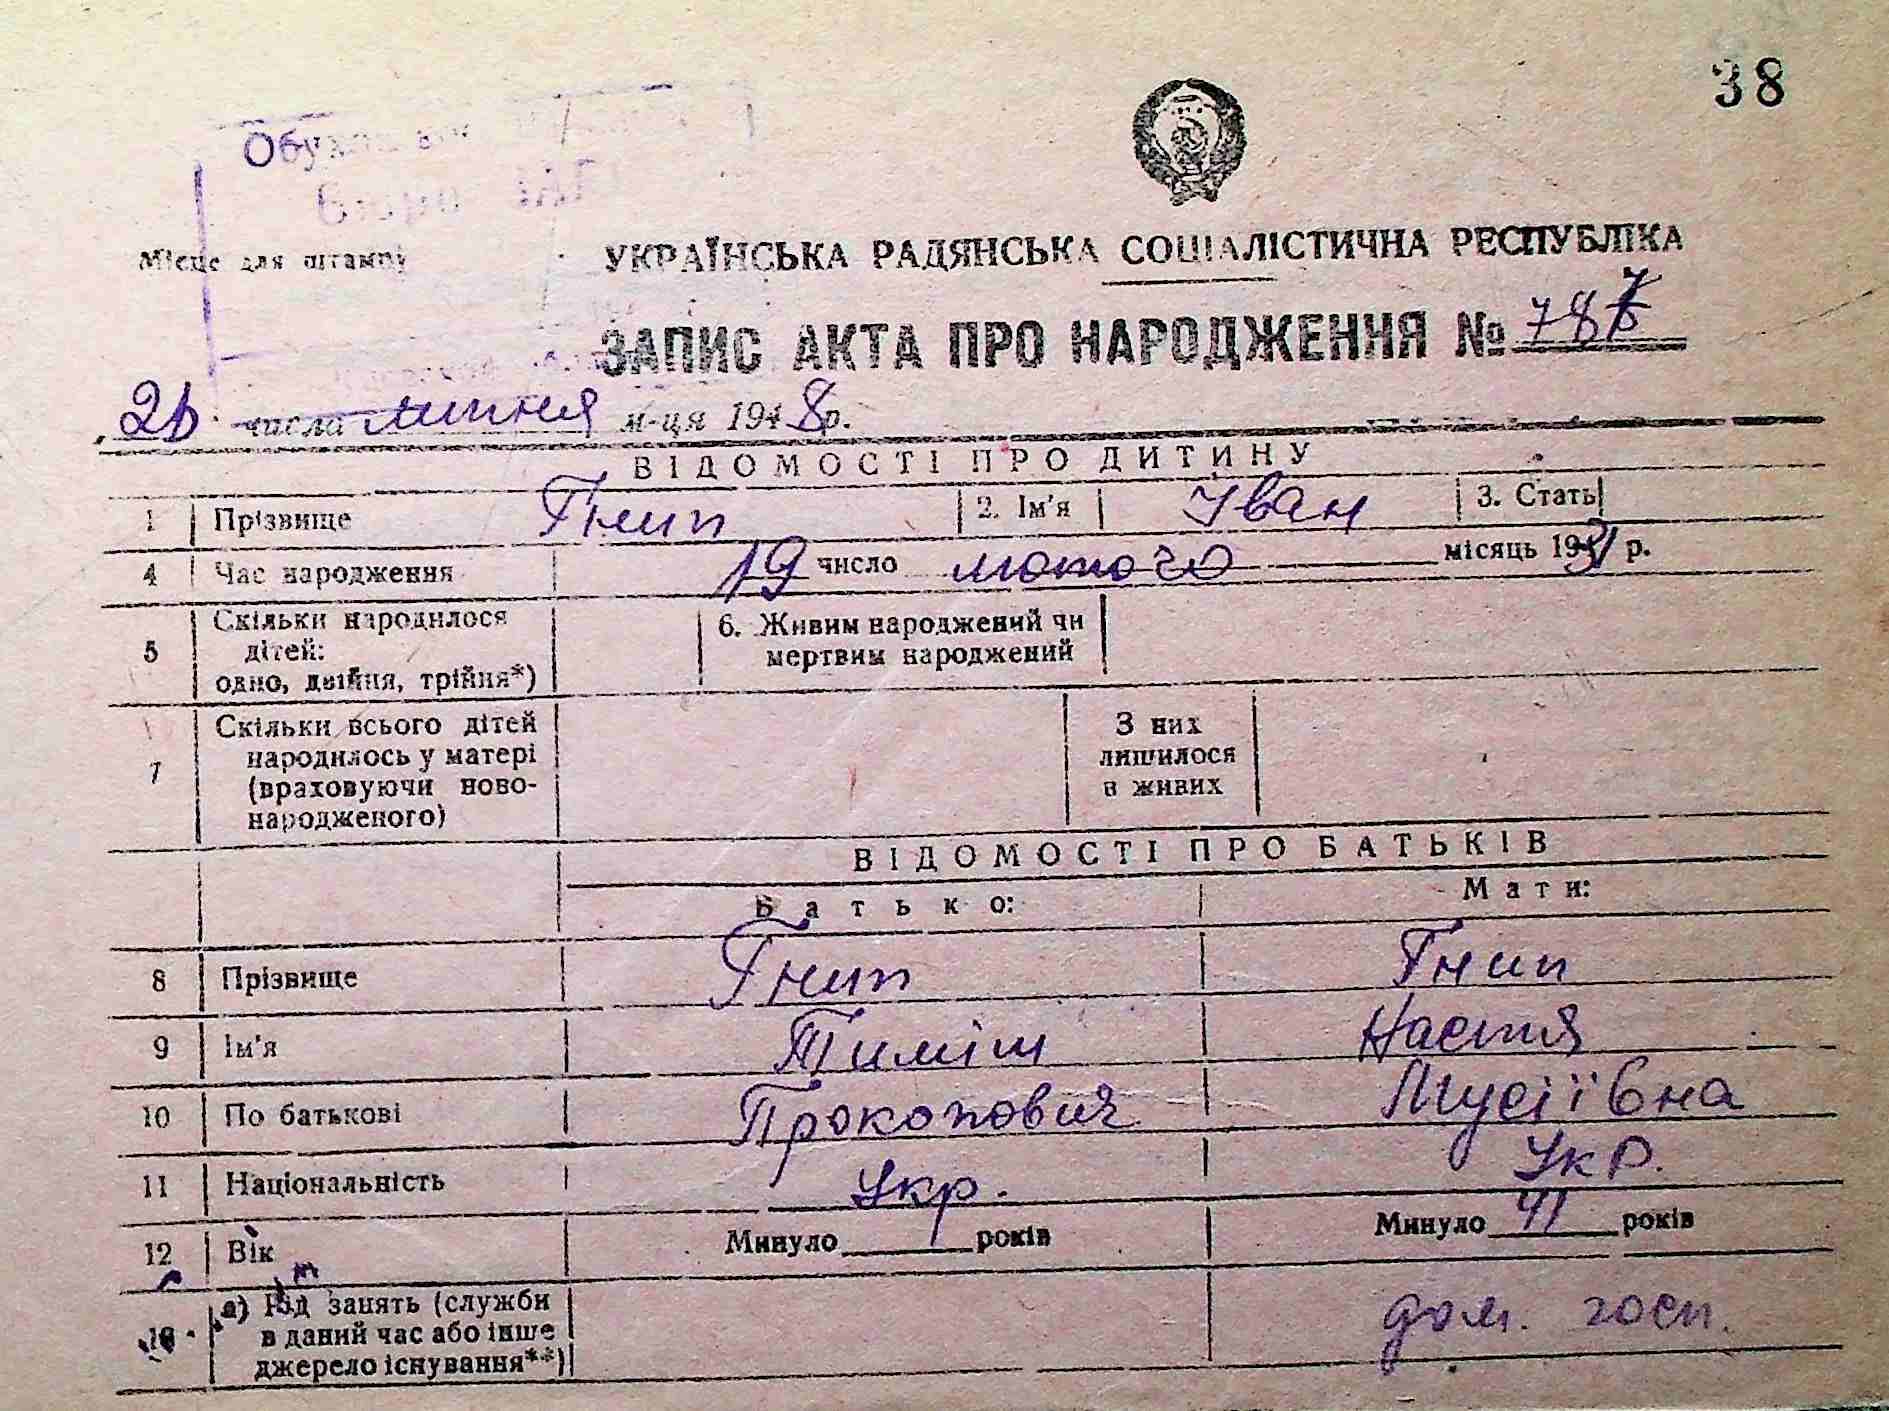 38
Місце для штампу
УКРАЇНСЬКА РАДЯНСЬКА СОЦІАЛІСТИЧНА РЕСПУБЛІКА
ЗАПИС АКТА ПРО НАРОДЖЕННЯ № 787
числа липня м-ця 1948 р.
ВІДОМОСТІ ПРО ДИТИНУ
1 Прізвище Гнип 2. Ім'я Іван 3. Стать
4 Час народження 19 число лютого місяць 1931 р.
5 Скільки народилося
дітей:
одно, двійня, трійня*)
6. Живим народжений чи
мертвим народжений
7 Скільки всього дітей
народилось у матері
(враховуючи ново-
народженого)
З них
лишилося
в живих
ВІДОМОСТІ ПРО БАТЬКІВ
Батько: Мати:
8 Прізвище Гнип Гнип
9 Ім'я Тиміш Настя
10 По батькові Прокопович Мусіївна
11 Національність Укр. Укр.
12 Вік Минуло років Минуло 41 років
а) Рід занять (служби
в даний час або інше
джерело існування**)
дом. госп.